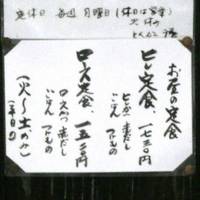 定休日 毎週 月曜日(休日は営業)
お昼の定食
ヒレ定食、一七五〇円
ヒレかつ 赤だし
ごはん つけもの
ロース定食、一五二〇円
ロースかつ 赤だし
ごはん つけもの
(火〜土のみ)
(平日)